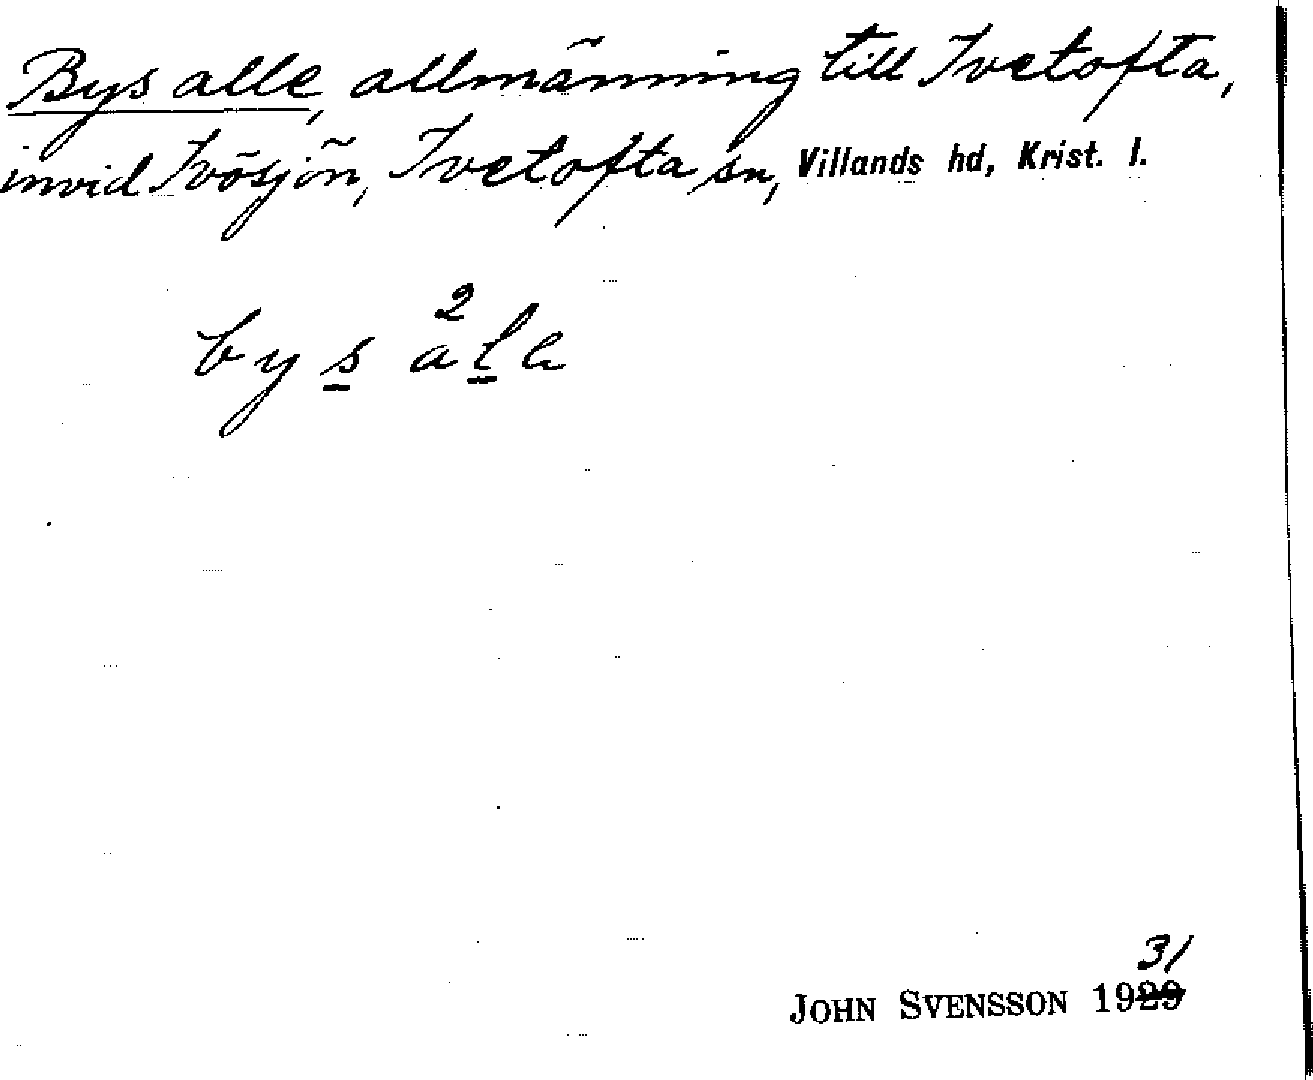 Bys alle, allmänning till Ivetofta,
invid Ivösjön, Ivetofta sn, Villands hd, Krist. l.
2
by s a l a
31
JOHN SVENSSON 1929